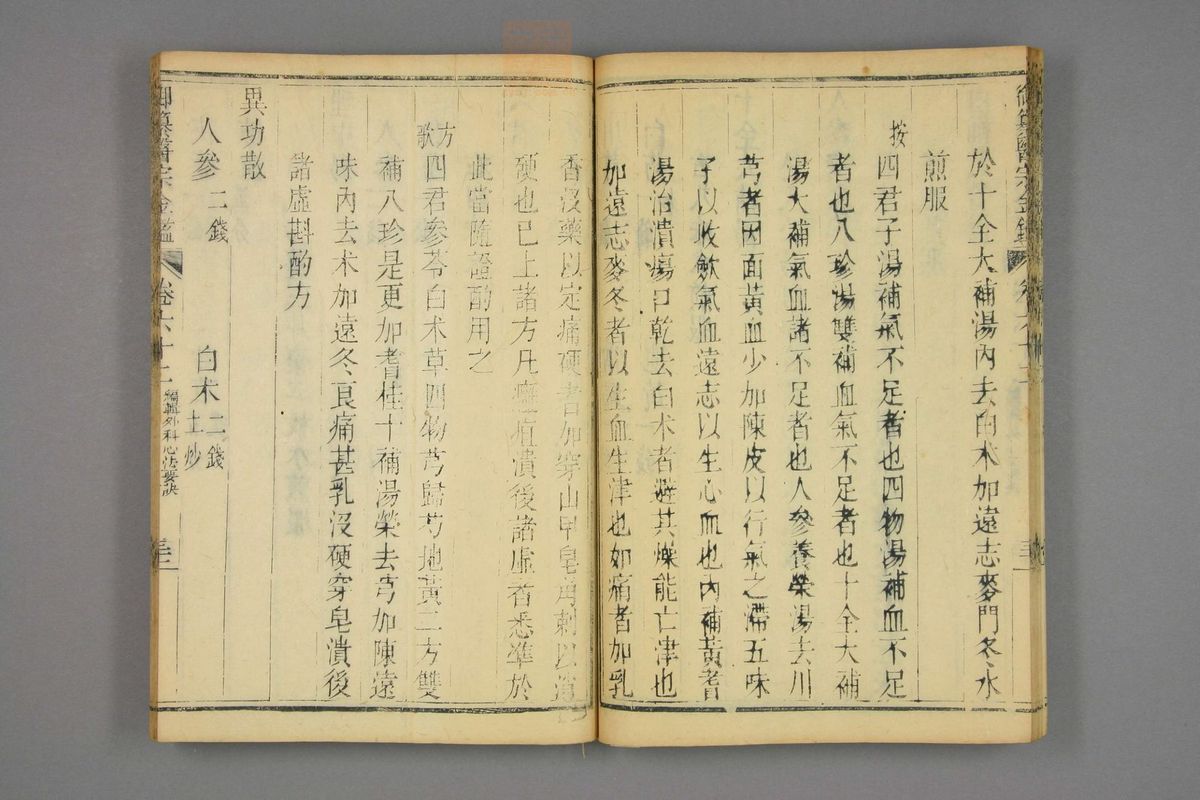 於十全大補湯內去白朮加遠志麥門冬水
煎服
按四君子湯補氣不足者也四物湯補血不足
者也八珍湯雙補血氣不足者也十全大補
湯大補氣血諸不足者也人參養榮湯去川
芎者因面黃血少加陳皮以行氣之滯五味
子以收斂氣血遠志以生心血也內補黃耆
湯治潰瘍口乾去白朮者避其燥能亡津也
加遠志麥冬者以生血生津也如痛者加乳
香沒藥以定痛硬者加穿山甲皂角刺以消
硬也已上諸方凡癰疽潰後諸虛者悉準於
此當隨證酌用之
方歌四君參苓白朮草四物芎歸芍地黃二方雙
補八珍是更加耆桂十補湯榮去芎加陳遠
味內去朮加遠冬良痛甚乳沒硬穿皂潰後
諸虛斟酌方
異功散
人參二錢 白朮二錢土炒
御纂醫宗金鑑 卷六十二 編輯外科心法要訣 三